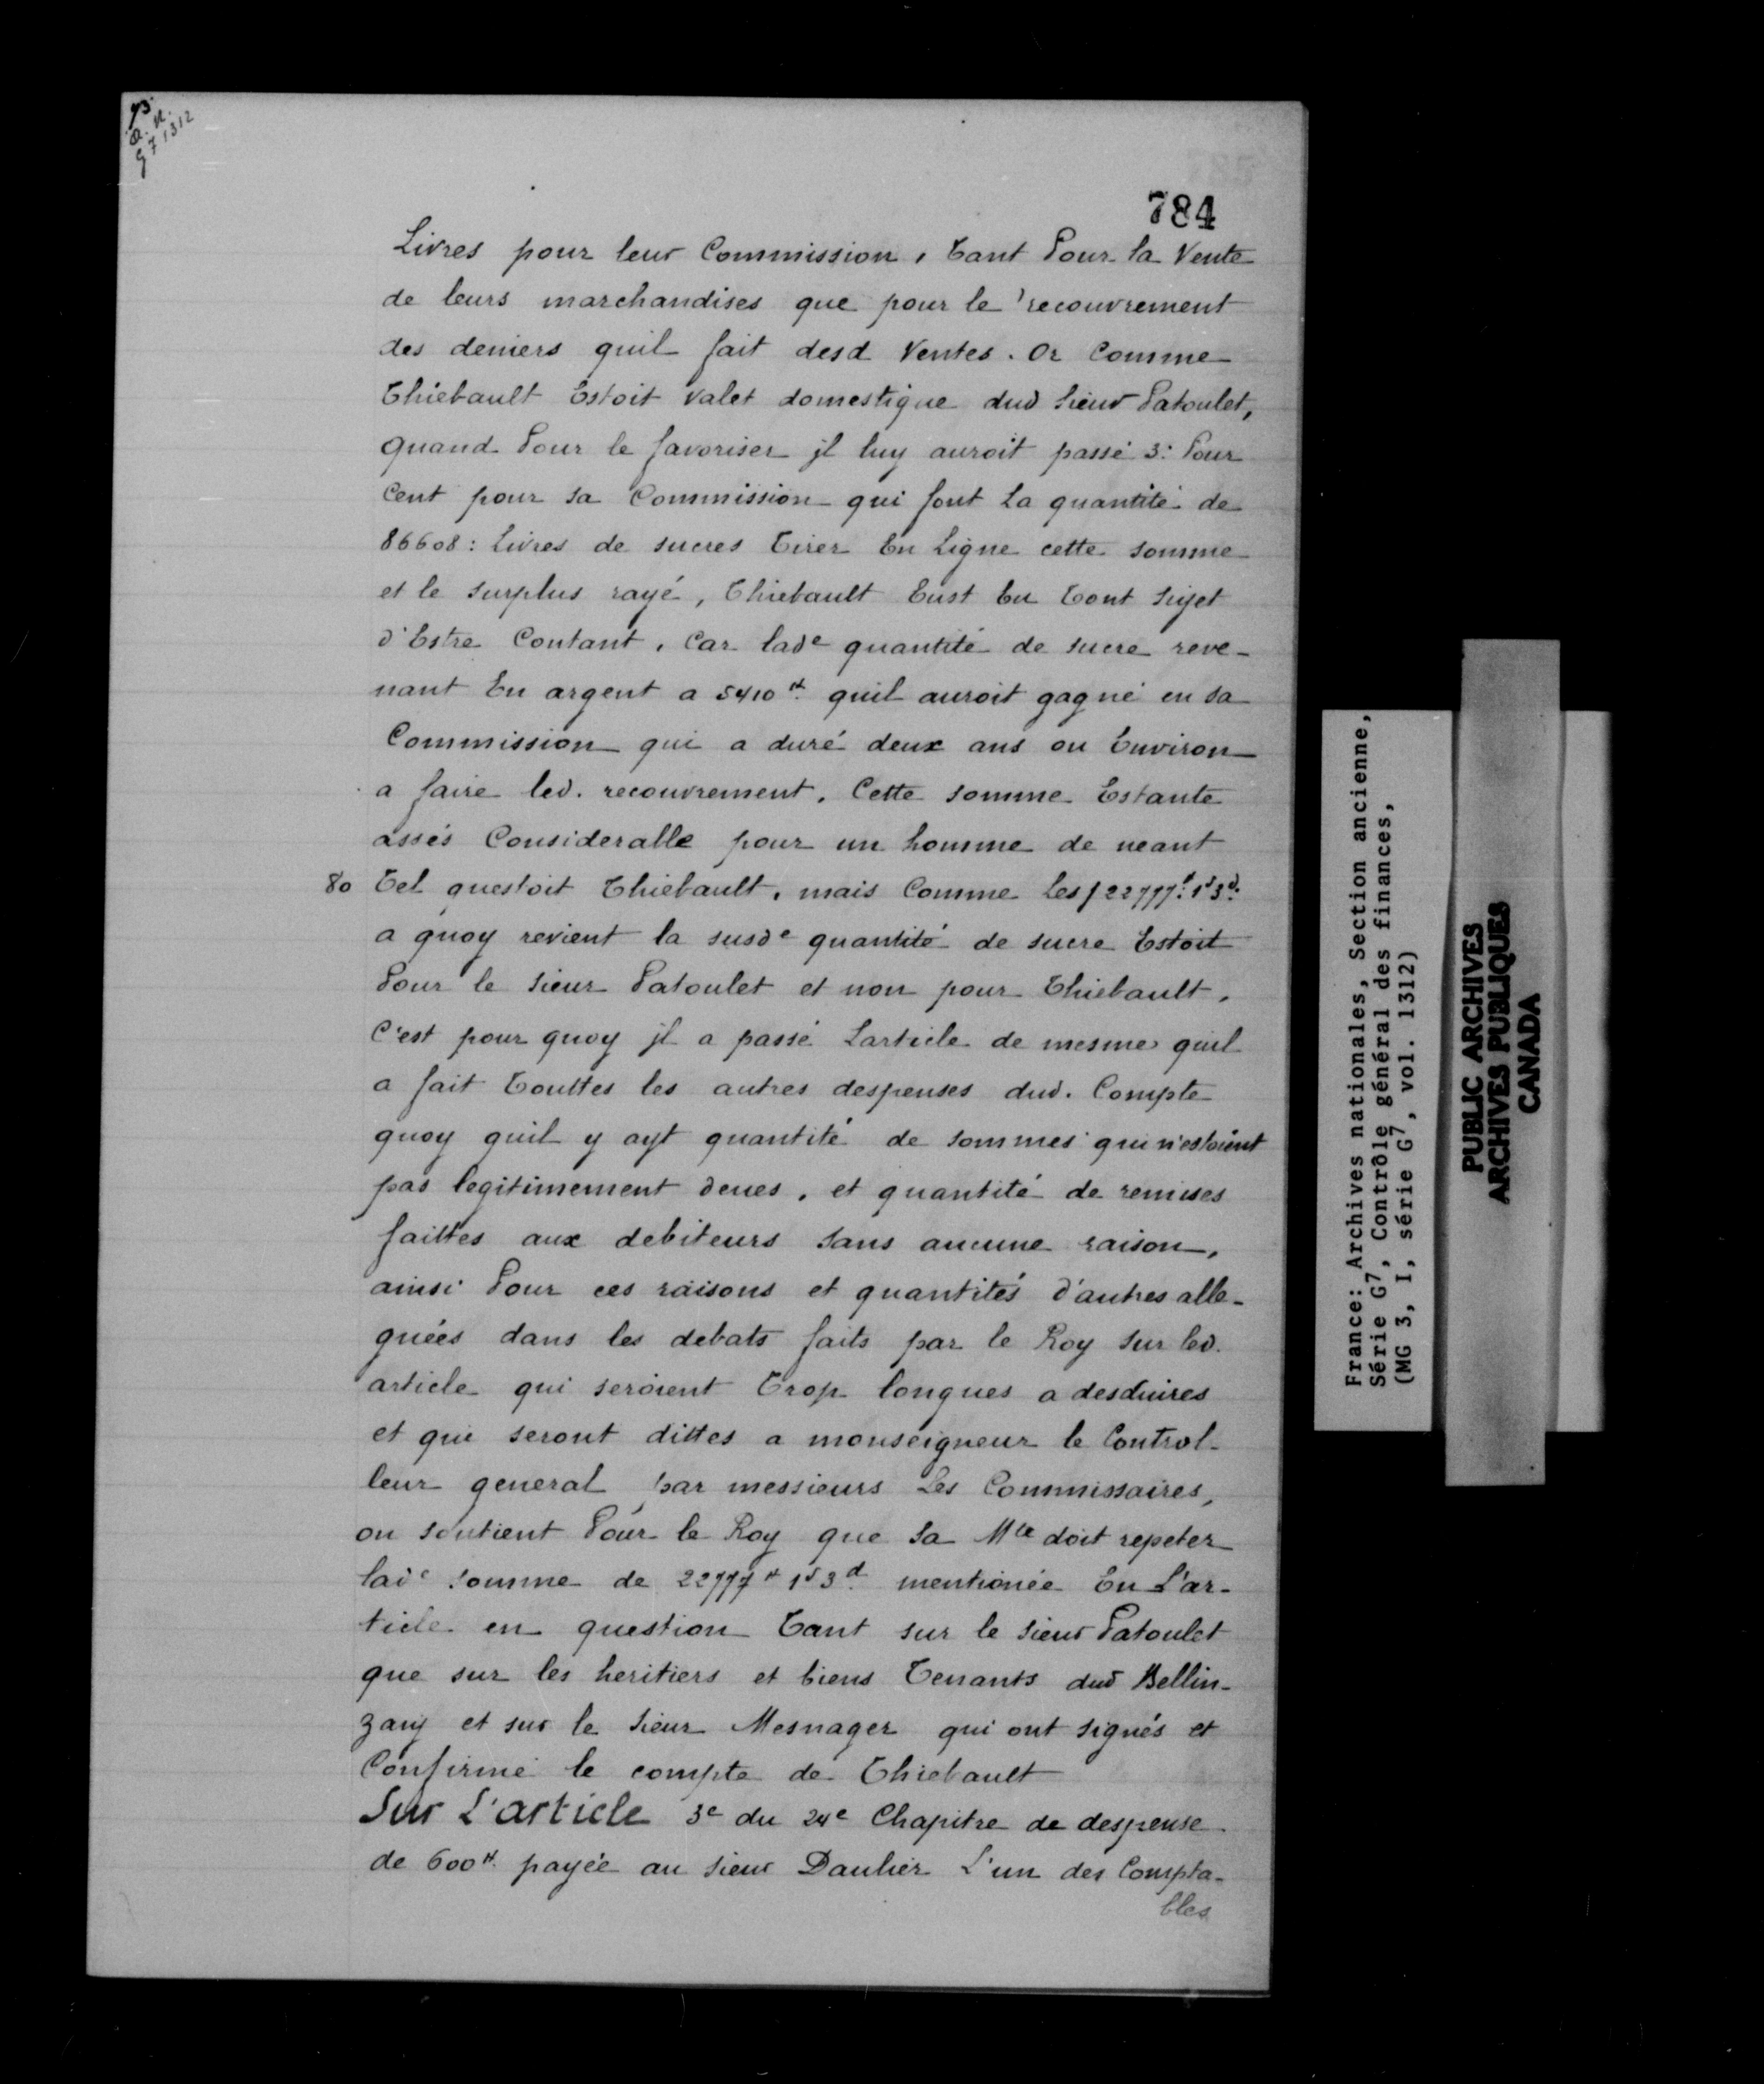 A. N.
G7 1312
784
Livres pour leur Commission, Tant Pour la Vente
de leurs marchandises que pour le recouvrement
des deniers quil fait desd Ventes. Or Comme
Thiebault Estoit valet domestique dud Sieur Patoulet,
quand Pour le favoriser jl luy auroit passé 3: Pour
Cent pour sa Commission qui font La quantité de
86608: Livres de sucres Tirer En Ligne cette somme
et le surplus rayé, Thiebault Eust Eu Tont sujet
d'Estre Contant, Car lade quantité de sucre reve-
nant En argent a 5410 ₶ quil auroit gagné en sa
Commission qui a duré deux ans ou Environ
a faire led. recouvrement, Cette somme Estante
assés Consideralle pour un homme de neant
80 Tel questoit Thiebault, mais Comme Les 22777₶: 1s 3d:
a quoy revient la susde quantité de sucre Estoit
Pour le Sieur Patoulet et non pour Thiebault,
C'est pour quoy jl a passé L'article de mesme quil
a fait Touttes les autres despenses dud. Compte
quoy quil y ayt quantité de sommes qui n'estoient
pas legitimement deues, et quantité de remises
faittes aux debiteurs sans aucune raison,
ainsi Pour ces raisons et quantités d'autres alle-
guées dans les debats faits par le Roy sur led.
article qui seroient Trop longues a desduires
et qui seront dittes a monseigneur le Control-
leur general par messieurs Les Commissaires,
on soutient Pour le Roy que Sa Mte doit repeter
lade somme de 22777 ₶ 1s 3d mentionée En L'ar-
ticle en question Tant sur le Sieur Patoulet
que sur les heritiers et biens Tenants dud Bellin-
zany et sur le Sieur Mesnager qui ont signés et
Confirmé le compte de Thiebault
Sur L'article 3e du 24e Chapitre de despense
de 600₶ payée au Sieur Daulier L'un des Compta-
bles
France: Archives nationales, Section ancienne,
Série G7, Contrôle général des finances,
(MG 3, I, série G7, vol. 1312)
PUBLIC ARCHIVES
ARCHIVES PUBLIQUES
CANADA